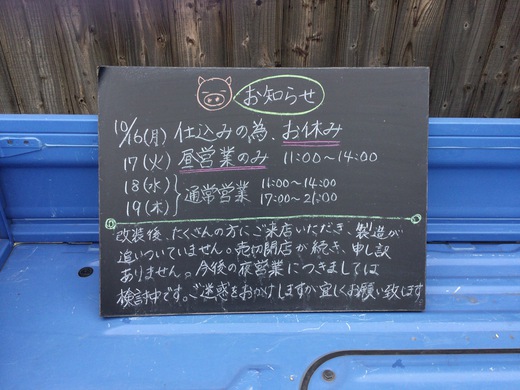 お知らせ
10/16(月) 仕込みの為、お休み
17(火) 昼営業のみ 11:00〜14:00
18(水) 通常営業 11:00〜14:00
19(木) 17:00〜21:00
改装後、たくさんの方にご来店いただき、製造が
追いついていません。売切閉店が続き、申し訳
ありません。今後の夜営業につきましては
検討中です。ご迷惑をおかけしますが宜しくお願い致します